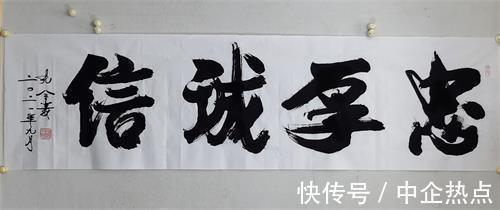 忠厚诚信
二〇二一年九月
快传号 / 中企热点